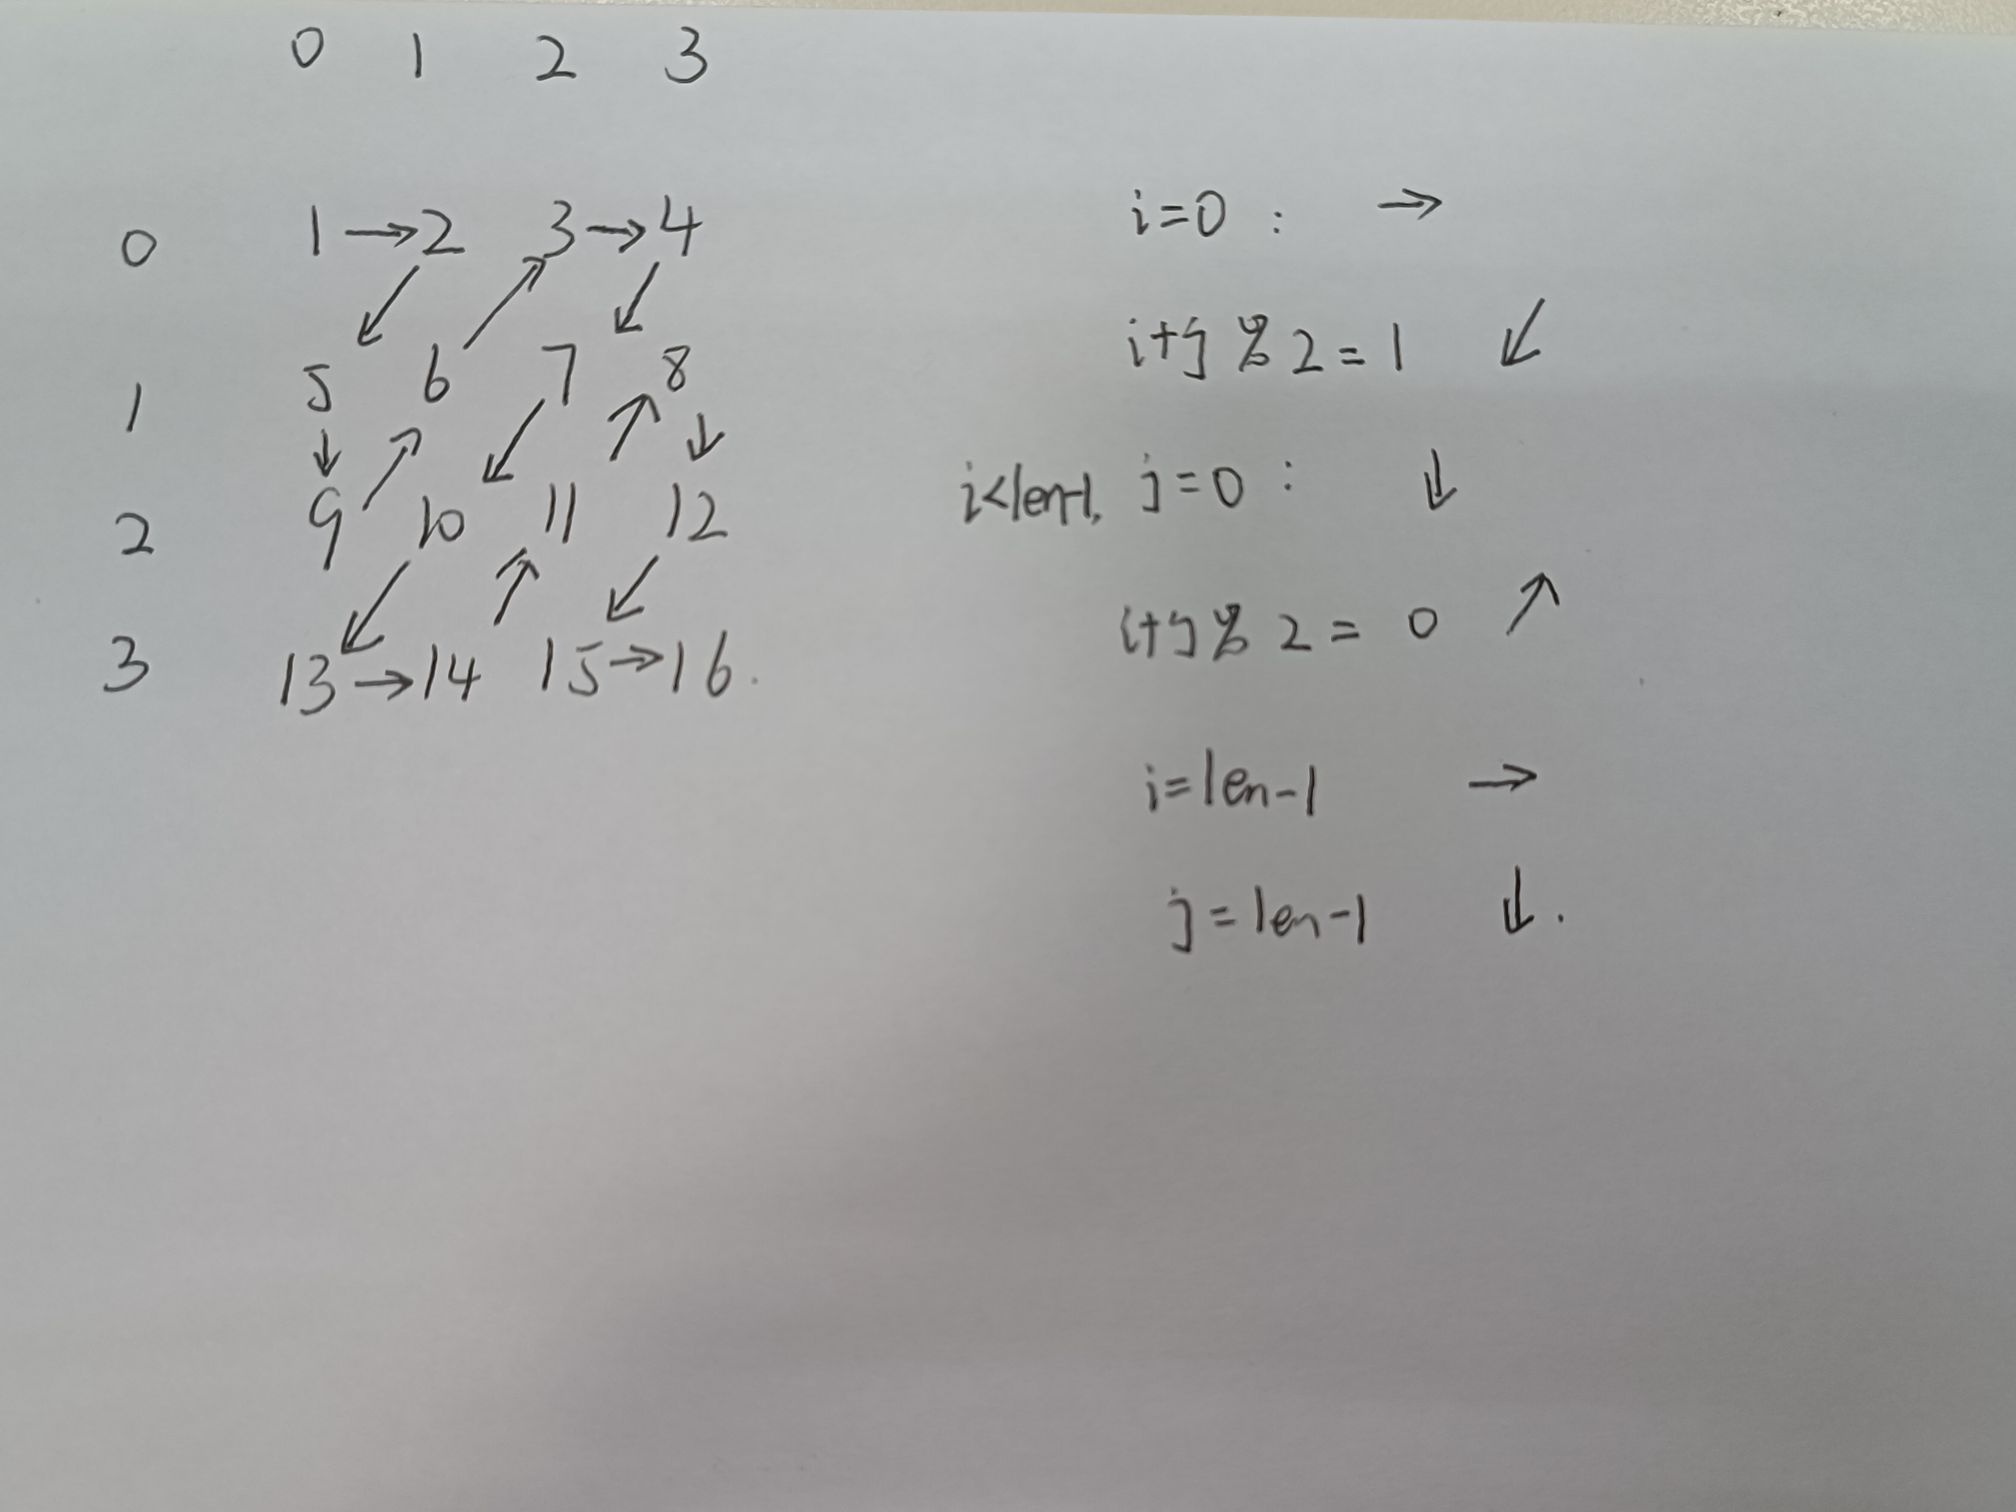 0 1 2 3
0 1 → 2 3 → 4
↙ ↗ ↙
1 5 6 7 8
↓ ↗ ↙ ↗ ↓
2 9 10 11 12
↙ ↗ ↙
3 13 → 14 15 → 16.
i=0 : →
i+j % 2 = 1 ↙
i<len-1, j=0 : ↓
i+j % 2 = 0 ↗
i=len-1 →
j=len-1 ↓.